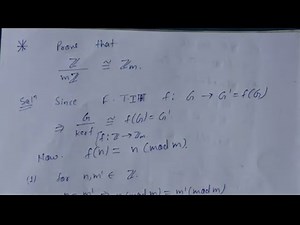 * Prove that
Z/mZ ≅ Zm.
Solⁿ Since F.T.I.H f: G → G' = f(G)
⇒ G/kerf ≅ f(G) = G'
f: Z → Zm
Now. f(n) = n (mod m).
(1) for n, m' ∈ Z.
m' (mod m)